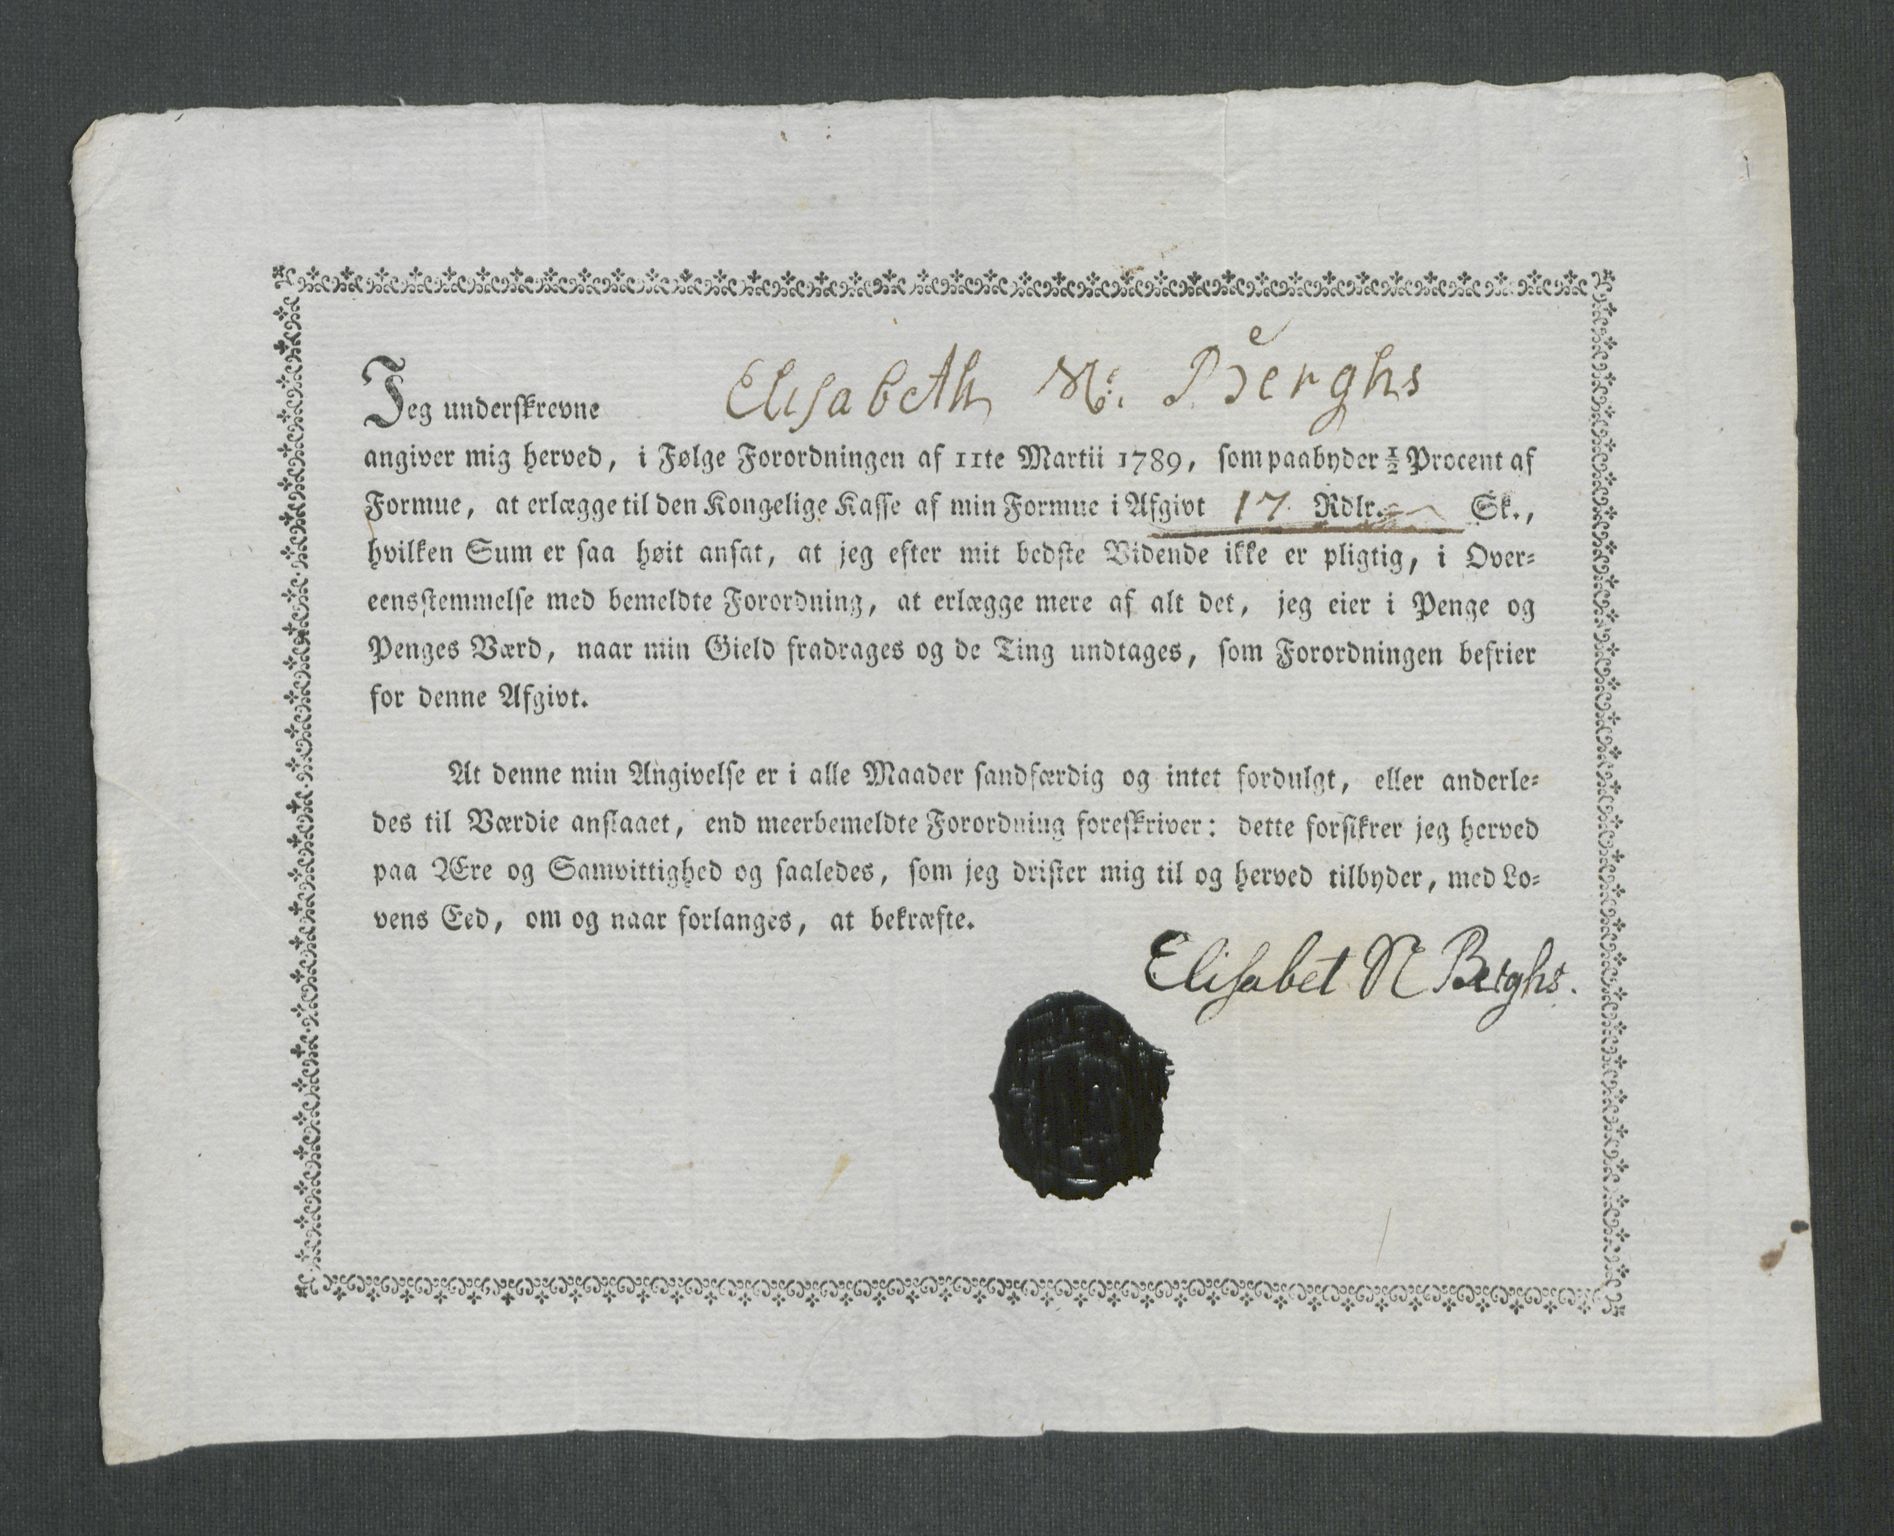 Jeg underskrevne Elisabeth N: Berghs
angiver mig herved, i Følge Forordningen af 11te Martii 1789, som paabyder ½ Procent af
Formue, at erlægge til den Kongelige Kasse af min Formue i Afgivt 17 Rdlr. — Sk.,
hvilken Sum er saa høit ansat, at jeg efter mit bedste Vidende ikke er pligtig, i Over-
eensstemmelse med bemeldte Forordning, at erlægge mere af alt det, jeg eier i Penge og
Penges Værd, naar min Gield fradrages og de Ting undtages, som Forordningen befrier
for denne Afgivt.
At denne min Angivelse er i alle Maader sandfærdig og intet fordulgt, eller anderle-
des til Værdie anslaaet, end meerbemeldte Forordning foreskriver: dette forsikrer jeg herved
paa Ære og Samvittighed og saaledes, som jeg drister mig til og herved tilbyder, med Lo-
vens Eed, om og naar forlanges, at bekræfte.
Elisabet N Berghs.